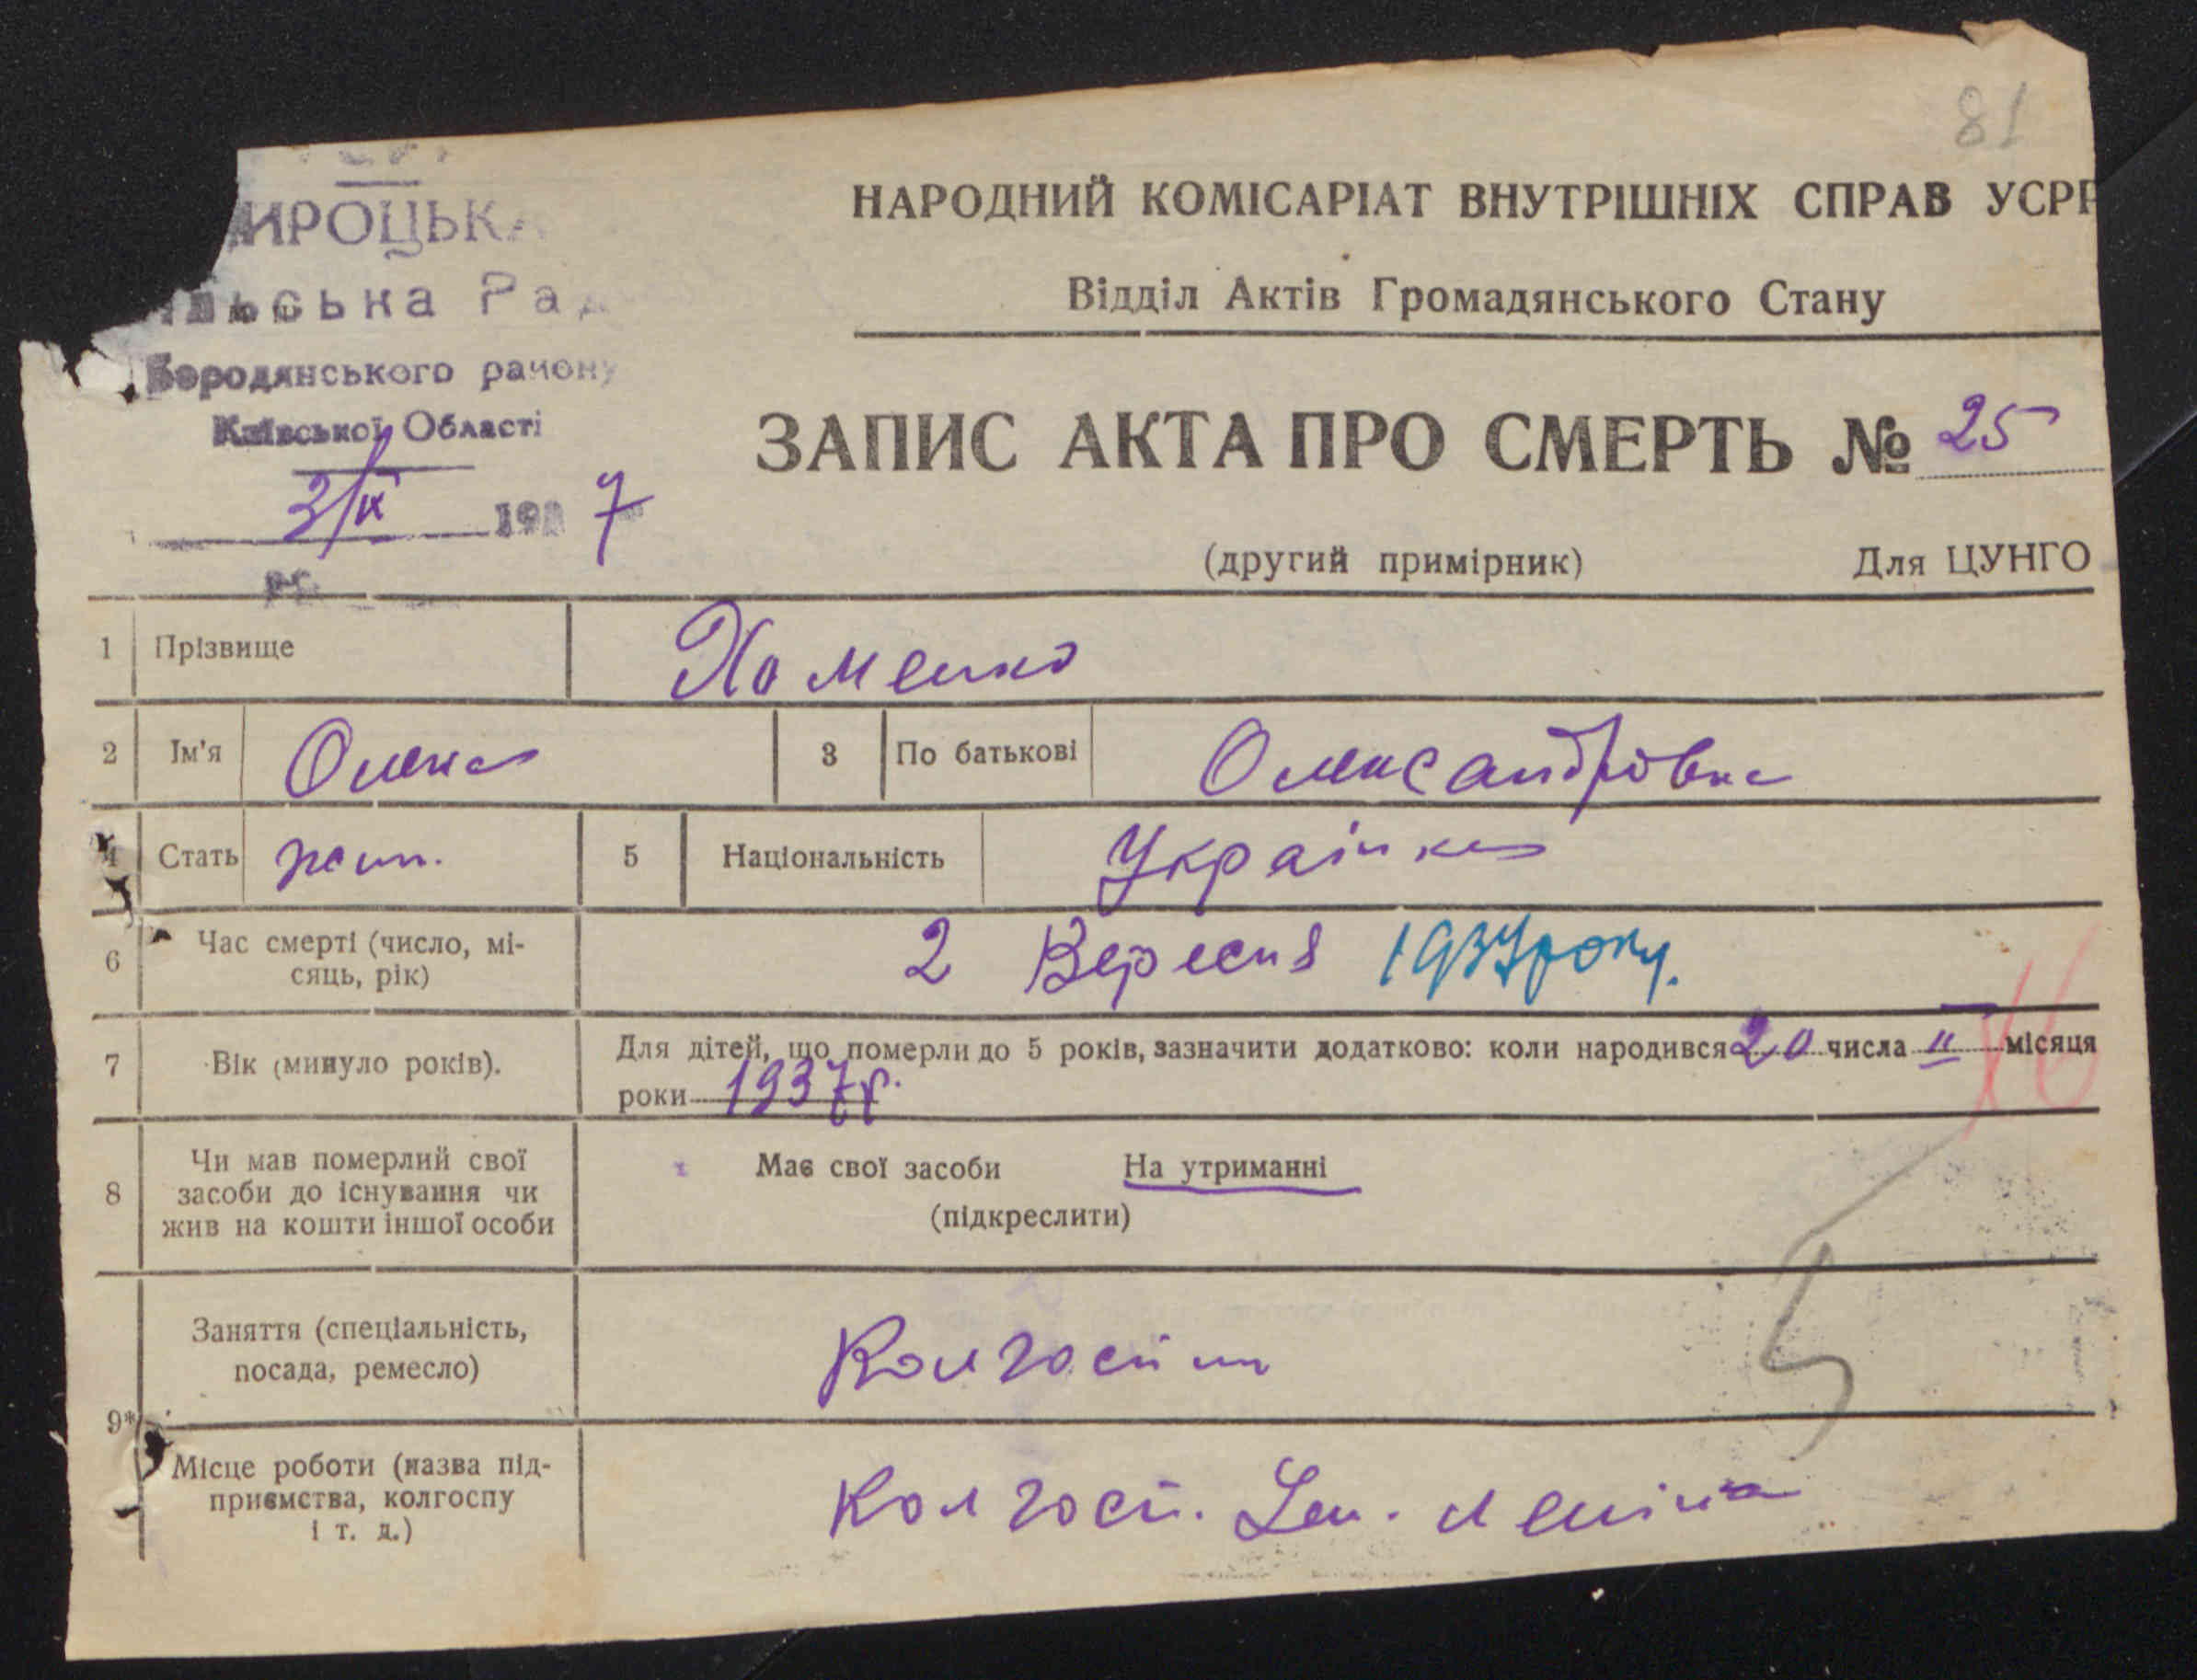 81
ИРОЦЬКА
льська Рад
Бородянського району
Київської Області
2/IX 193 7
НАРОДНИЙ КОМІСАРІАТ ВНУТРІШНІХ СПРАВ УСРР
Відділ Актів Громадянського Стану
ЗАПИС АКТА ПРО СМЕРТЬ № 25
(другий примірник) Для ЦУНГО
1 Прізвище Хоменко
2 Ім'я Олена 3 По батькові Олександровна
4 Стать жін. 5 Національність Українка
6 Час смерті (число, мі-
сяць, рік) 2 Вересня 1937 року.
7 Вік (минуло років). Для дітей, що померли до 5 років, зазначити додатково: коли народився 20 числа II місяця
роки 1937 р.
8 Чи мав померлий свої
засоби до існування чи
жив на кошти іншої особи
Має свої засоби На утриманні
(підкреслити)
9* Заняття (спеціальність,
посада, ремесло) Колгосп
Місце роботи (назва під-
приємства, колгоспу
і т. д.) Колгосп. Леніна